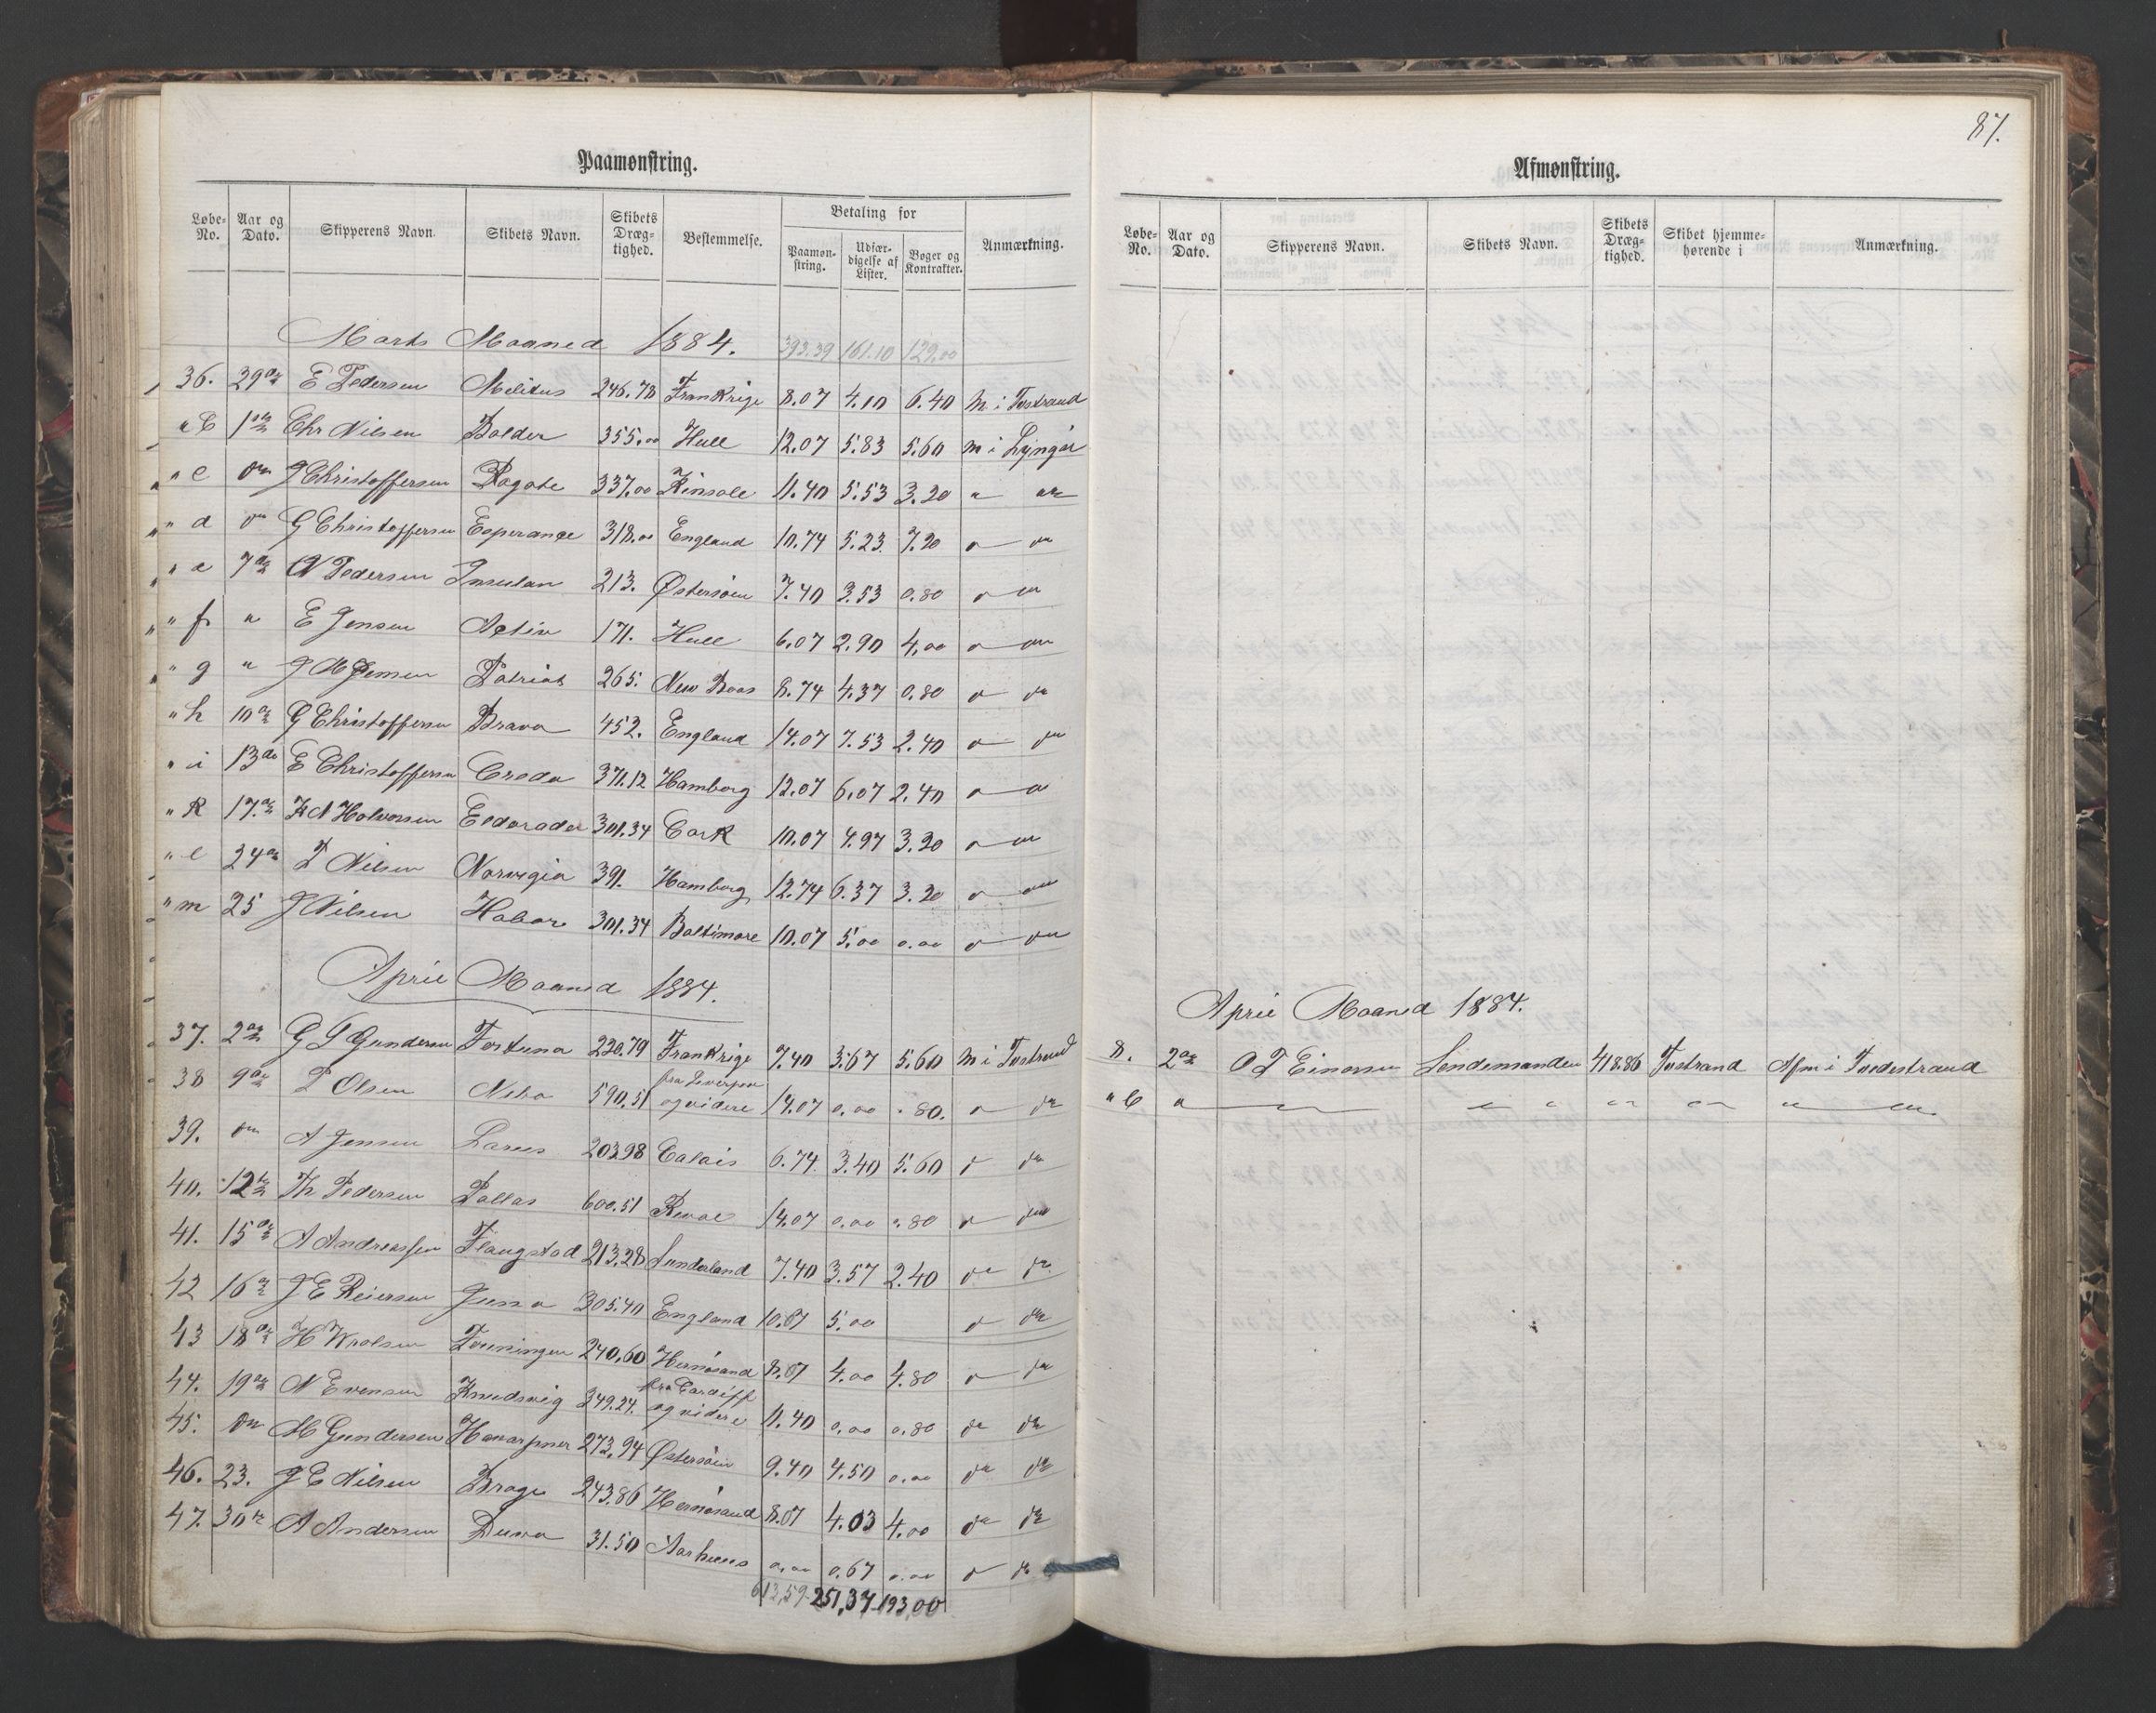 Paamønstring.
Løbe-No. Aar og Dato. Skipperens Navn. Skibets Navn. Skibets Dræg-tighed. Bestemmelse. Betaling for Paamøn-string. Udfær-digelse af Lister. Bøger og Kontrakter. Anmærkning.
Marts Maaned 1884. 393.39 161.10 129.00
36. 29 E Pedersen Militus 246.78 Frankrige 8.07 4.10 6.40 M i Tvstrand
" b 1 Chr Nilsen Balder 355.00 Hull 12.07 5.83 5.60 M i Lyngør
" c do J Christoffersen Ragate 337.00 Kinsale 11.40 5.53 3.20 " do
" d do G Christoffersen Esperance 318.00 England 10.74 5.23 7.20
" e 7 N Pedersen Insulan 213. Østersøen 7.40 3.53 0.80
" f " E Jensen Activ 171. Hull 6.07 2.90 4.00
" g " J M Jensen Patriot 265. New Ross 8.74 4.37 0.80
" h 10 G Christoffersen Brava 452. England 14.07 7.53 2.40
" i 13 do E Christoffersen Creda 371.12 Hamborg 12.07 6.07 2.40
" k 17. K N Halvorsen Eldorado 301.34 Cork 10.07 4.97 3.20
" l 24 P Nilsen Norvegia 391. Hamborg 12.74 6.37 3.20
" m 25 J Nilsen Habor 301.34 Baltimore 10.07 5.00 0.00
April Maaned 1884.
37. 2 G T Gundersen Fortuna 220.79 Frankrige 7.40 3.67 5.60 M i Tvstrand
38 9 P Olsen 590.51 fra Liverpool og videre 14.07 0.00 " 80.
39. do A Jensen 203.98 Calais 6.74. 3.40 5.60
40. 12 Th Pedersen Pallas 600.51 Reval 14.07 0.00 0.80
41. 15 A Andreassen Flaugstad 213.28 Sunderland 7.40 3.57 2.40
42 16 J E Reiersen Juno 305.40 England 10.07 5.00
43 18 H Wrolsen Foreningen 240,60 Hernøsand 8.07 4.00 4.80
44. 19 N Evensen Knudsvig 349.24. fra Cardiff og videre 11.40 0.00 0.80
45. do M Gundersen 273.94 Østersøen 9.40 4.50 0.00
46. 23. J E Nilsen Brage 243.86 Hernøsand 8.07 4.03 4.00
47. 30 A Andersen Duna 31.50 Aarhuus 0.00 0.67 0.00
613,59 251,37 193,00
87.
Afmønstring.
Løbe-No. Aar og Dato. Skipperens Navn. Skibets Navn. Skibets Dræg-tighed. Skibet hjemme-hørende i Anmærkning.
April Maaned 1884.
8. 2 O T Einersen Lendsmanden 418.86 Tvstrand Afm i Tvedestrand
" b "